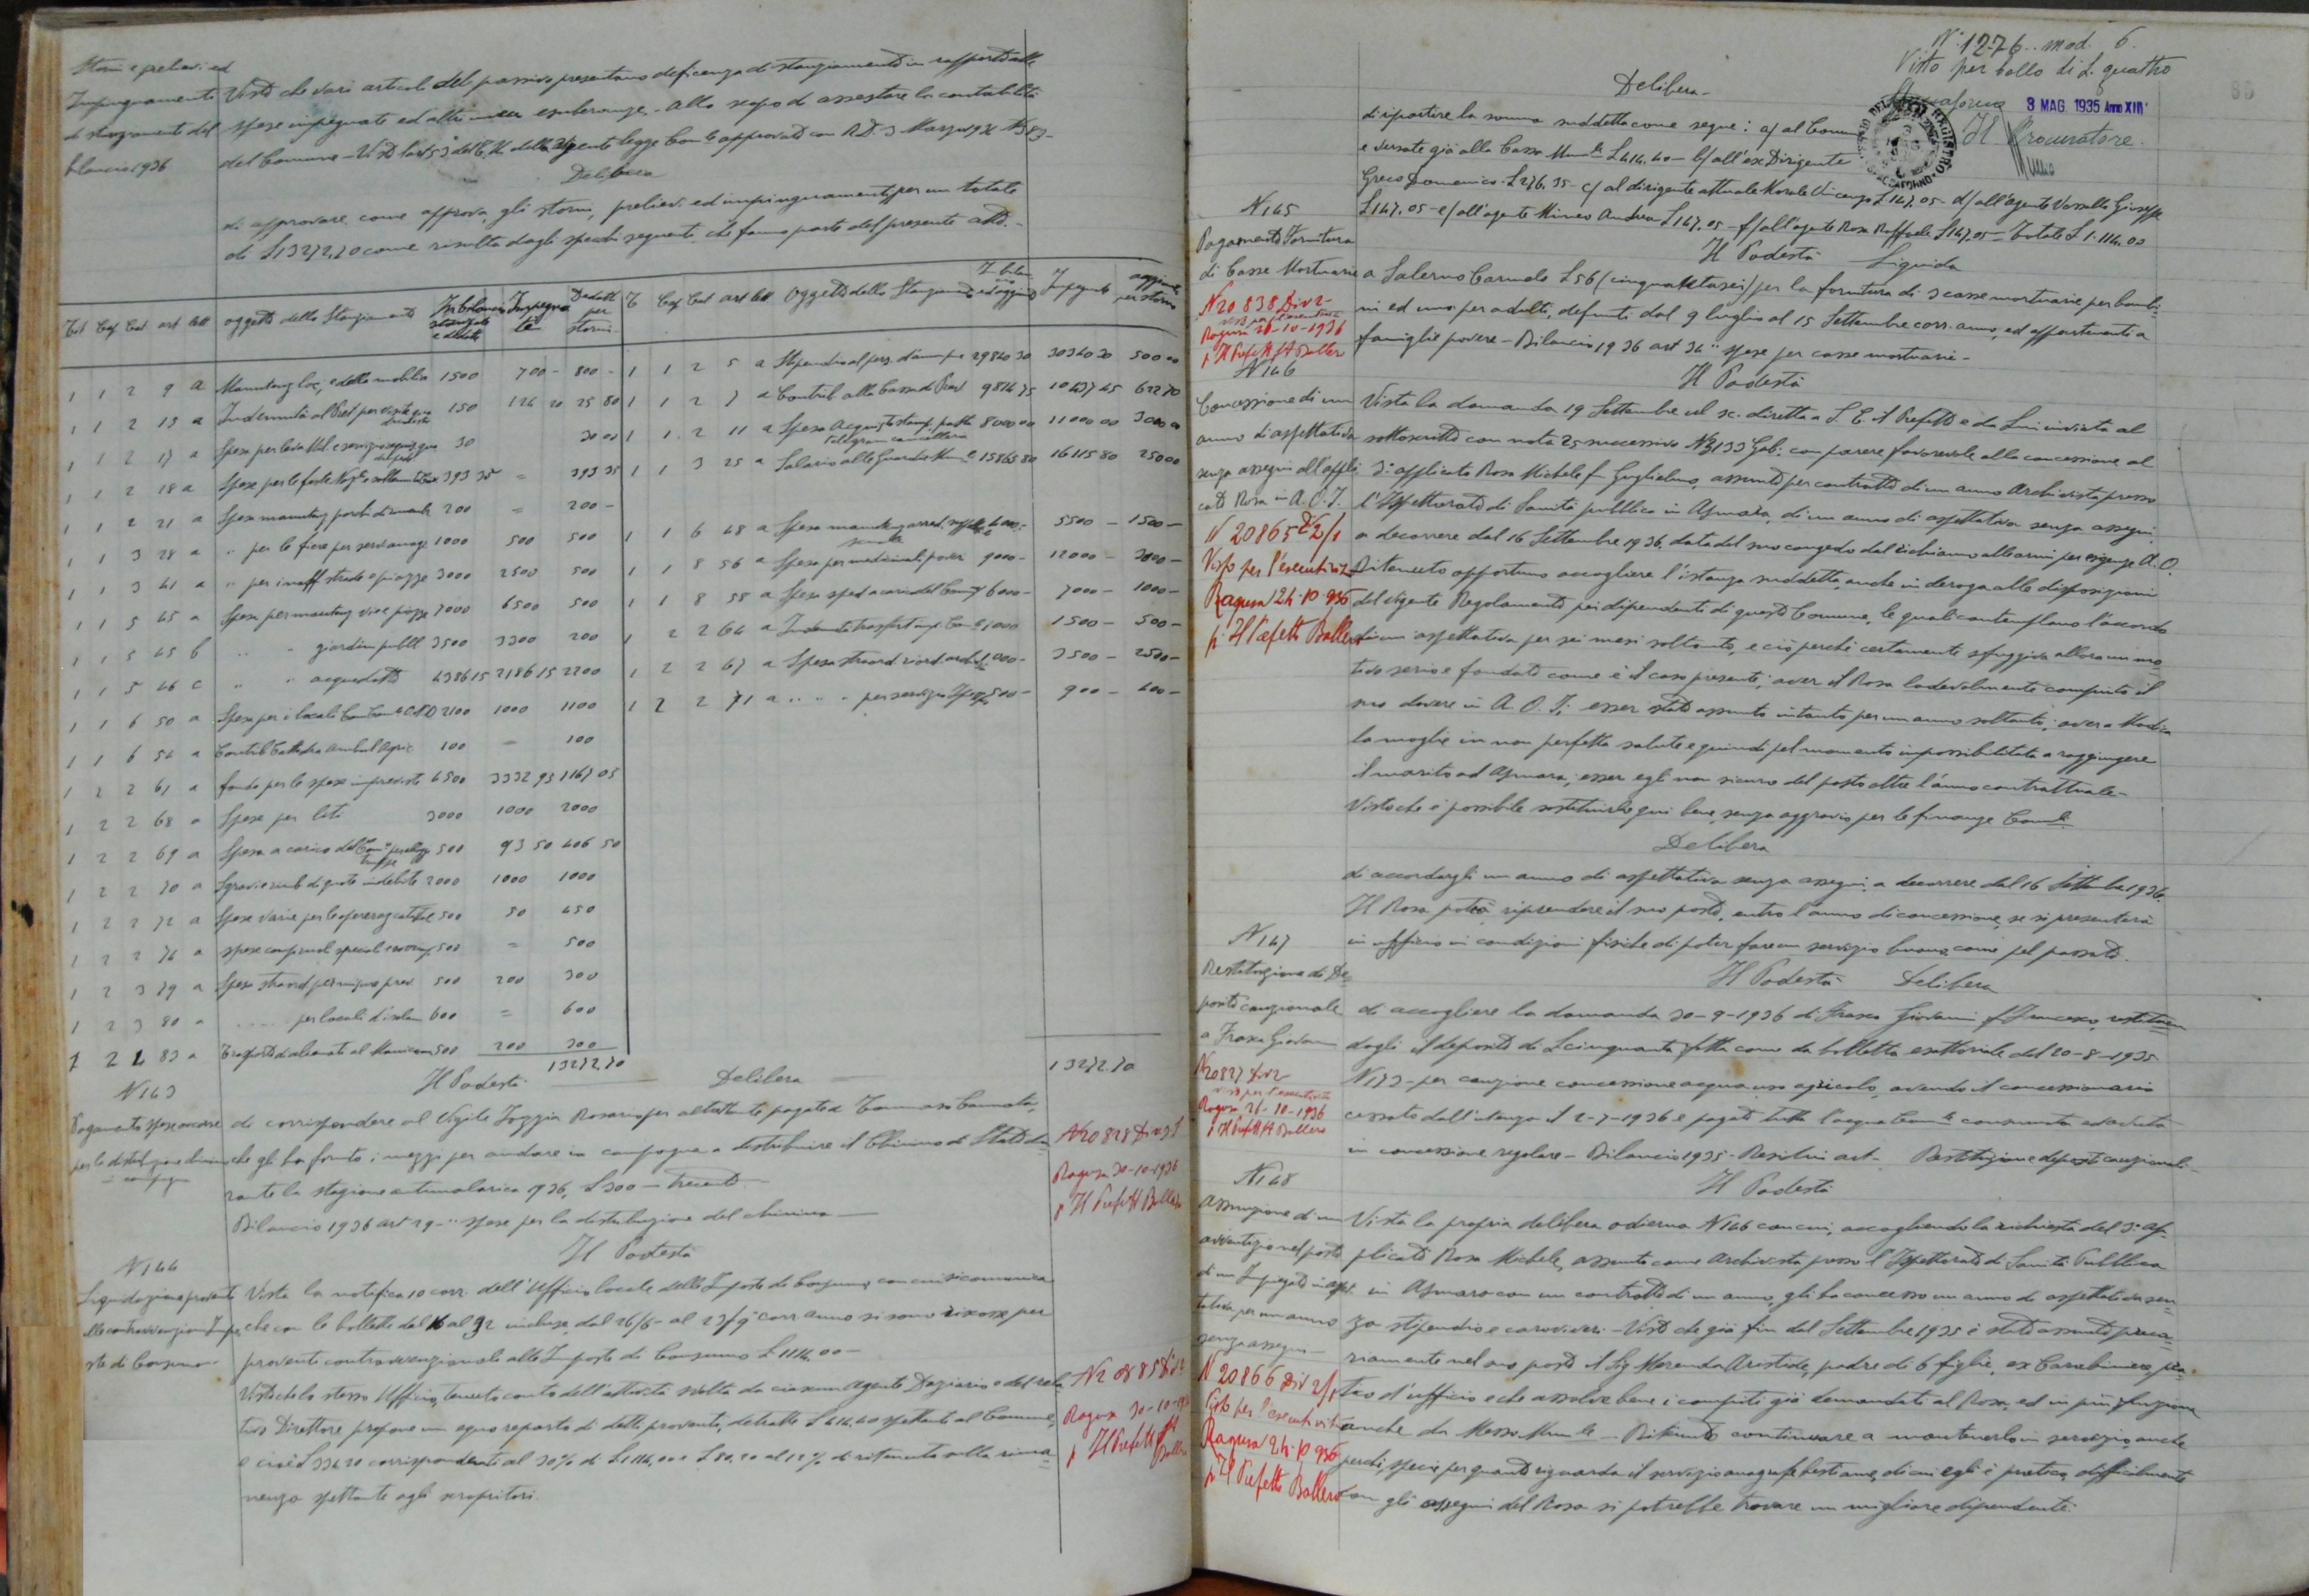 Storni e preliev. ed
Impinguamenti
di stanziamenti del
bilancio 1936
Visto che vari articoli del passivo presentano deficienza di stanziamento in rapporto alle
spese impegnate ed altri esuberanze. Allo scopo di assestare la contabilità
del Comune - Visto l'art. della vigente legge Com.le approvato con R.D. 3 Marzo 1934 N 383 -
Delibera
di approvare come approva gli storni, preliev. ed impinguamenti per un totale
di £ 13272,70 come risulta dagli specchi seguenti che fanno parte del presente atto. -
Tit Cap Cat art lett oggetto dello Stanziamento In bilancio Impegnate Dedotti per storni
T Cap Cat art lett Oggetto dello Stanziamento Impegnate aggiunte per storni
1 1 2 9 a Manutenz loc. e della mobilia 1500 700 - 800 -
1 1 2 5 a Stipendio al pers. d'amm.ne 29840 30 30340 30 500 00
1 1 2 15 a Indennità al Pret per visite 150 124 20 25 80
1 1 2 7 a Contrib alla Cassa di Prev 9814 75 10437 45 622 70
1 1 2 17 a Spesa per leva Mil. e servizio 30 30 00
1 1 2 11 a Spesa acquisto stamp. postali telegram cancelleria 8000 00 11000 00 3000 00
1 1 2 18 a Spese per le feste Naz.li e solennità 393 35 = 393 35
1 1 3 25 a Salario alle Guardie Mun.li 15865 80 16115 80 250 00
1 1 2 21 a Spesa manutenz 200 = 200 -
1 1 3 28 a " per le fiere per serv annog. 1000 500 500
1 1 6 48 a Spesa manutenz arred. scuole 4000 - 5500 - 1500 -
1 1 3 41 a " per inaff strade e piazze 3000 2500 500
1 1 8 56 a Spesa per medicinali poveri 9000 - 12000 - 3000 -
1 1 5 45 a Spesa per manutenz vie e piazze 7000 6500 500
1 1 8 58 a Spesa sped a carico del Comune 6000 - 7000 - 1000 -
1 1 5 45 b " " giardini pubbl 3500 3300 200
1 2 2 64 a Indennità trasfert imp. Com.li 1000 1500 - 500 -
1 1 5 46 c " " acquedotti 4386 15 2186 15 2200
1 2 2 67 a Spesa straord riord arch. 1000 - 3500 - 2500 -
1 1 6 50 a Spesa per i locali O.N.D 2100 1000 1100
1 2 2 71 a " " " per servizio 500 - 900 - 400 -
1 1 6 54 a Contrib Cattedra Ambul Agric 100 = 100
1 2 2 61 a fondo per le spese impreviste 4500 3332 95 1167 05
1 2 2 68 a Spese per liti 3000 1000 2000
1 2 2 69 a Spesa a carico del Com.e 500 93 50 406 50
1 2 2 70 a Sgravi e rimb di quote indebite 2000 1000 1000
1 2 2 72 a Spese varie per le opere 500 50 450
1 2 2 76 a spese 500 = 500
1 2 3 79 a Spesa straord per 500 200 300
1 2 3 80 a " " per locali d'isolam 600 = 600
1 2 4 83 a Trasporto di alienati al Manicomio 500 200 300
13272.70
13272.70
N 143
Pagamento spese occorse
per la distribuzione chinino
in campagna
Il Podestà Delibera
di corrispondere al Vigile Foggia Rosario per altrettante pagate a Tommaso Cannata,
che gli ha fornito i mezzi per andare in campagna a distribuire il Chinino di Stato du
rante la stagione antimalarica 1936, £ 300 - trecento
Bilancio 1936 art 29 - " spese per la distribuzione del chinino
N 20828 Div 2 I
Ragusa 30-10-1936
p Il Prefetto Ballero
N 144
Liquidazione proventi
alle contravvenzioni Impo
ste di Consumo -
Il Podestà
Vista la notifica 10 corr. dell'Ufficio locale delle Imposte di Consumo, con cui si comunica
che con le bollette dal 16 al 32 incluse, dal 26/6 - al 23/9 corr anno si sono riscosse per
proventi contravvenzionali alle Imposte di Consumo £ 1114.00 -
Visto che lo stesso Ufficio, tenuto conto dell'attività svolta da ciascun Agente Daziario e del rela
tivo Direttore propone un equo reparto di detti proventi, detratte £ 414.40 spettanti al Comune,
e cioè £ 334.20 corrispondenti al 30% di £ 1114,00 e £ 80,20 al 12% di ritenuta sulla rima
nenza spettante agli scopritori.
N 20885 Div 2
Ragusa 30-10-1936
p Il Prefetto Ballero
N. 1276 . mod. 6.
Visto per bollo di L. quattro
3 MAG. 1935 Anno XIII
Il Procuratore
Delibera -
di ripartire la somma suddetta come segue: a) al Comune
e versate già alla Cassa Mun.le £ 414.40 - b) all'ex Dirigente
Greco Domenico £ 276.35 - c) al dirigente attuale Morale Vincenzo £ 147.05 - d) all'agente Vassallo Giuseppe
£ 147.05 - e) all'agente Mineo Andrea £ 147.05 - f) all'agente Rosa Raffaele £ 147.05 - Totale £ 1.114.00
N 145
Pagamento Fornitura
di Casse Mortuarie
N 20838 Div 2 -
Visto per l'esecutività
Ragusa 26-10-1936
p Il Prefetto Ballero
Il Podestà Liquida
a Salerno Carmelo £ 56 (cinquantasei) per la fornitura di 3 casse mortuarie per bambi
ni ed uno per adulti, defunti dal 9 luglio al 15 Settembre corr. anno, ed appartenenti a
famiglie povere - Bilancio 1936 art 34 " spese per casse mortuarie -
N 146
Concessione di un
anno di aspettativa
senza assegni all'appli
cato Rosa in A.O.I.
N 20865 Div 2/1
Visto per l'esecutività
Ragusa 24.10.936
p. Il Prefetto Ballero
Il Podestà
Vista la domanda 19 Settembre u.s. diretta a S.E. il Prefetto e da Lui inviata al
sottoscritto con nota 25 successivo N 3133 Gab. con parere favorevole alla concessione al
3° applicato Rosa Michele fu Guglielmo, assunto per contratto di un anno Archivista presso
l'Ispettorato di Sanità pubblica in Asmara, di un anno di aspettativa senza assegni,
a decorrere dal 16 Settembre 1936, data del suo congedo dal richiamo alle armi per esigenze A.O.
Ritenuto opportuno accogliere l'istanza suddetta, anche in deroga alle disposizioni
del vigente Regolamento pei dipendenti di questo Comune, le quali contemplano l'accordo
di un'aspettativa per sei mesi soltanto, e ciò perchè certamente sfuggiva allora un mo
tivo serio e fondato come è il caso presente; aver il Rosa lodevolmente compiuto il
suo dovere in A.O.I; esser stato assunto intanto per un anno soltanto; avere a Modica
la moglie in non perfetta salute e quindi pel momento impossibilitata a raggiungere
il marito ad Asmara; esser egli non sicuro del posto oltre l'anno contrattuale -
Visto che è possibile sostituirlo qui bene, senza aggravio per le finanze Com.li
Delibera
di accordargli un anno di aspettativa senza assegni, a decorrere dal 16 Settembre 1936.
Il Rosa potrà riprendere il suo posto, entro l'anno di concessione, se si presenterà
in ufficio in condizioni fisiche di poter fare un servizio buono, come pel passato.
N 147
Restituzione di De
posito cauzionale
a Frasca Giovanni
N 20827 Div 2
Visto per l'esecutività
Ragusa, 21-10-1936
p Il Prefetto Ballero
Il Podestà Delibera
di accogliere la domanda 30-9-1936 di Frasca Giovanni fu Francesco, restituen
dogli il deposito di £ cinquanta, fatto come da bolletta esattoriale del 20-8-1935
N 173 - per cauzione concessione acqua uso agricolo, avendo il concessionario
cessato dall'utenza il 2-7-1936 e pagato tutta l'acqua Com.le consumata ed avuta
in concessione regolare - Bilancio 1935 - Residui art - Restituzione depositi cauzionali -
N 148
Assunzione di un
avventizio nel posto
di un Impiegato in aspet
tativa per un anno
senza assegni -
N 20866 Div 2/1
Visto per l'esecutività
Ragusa 24.10.936
p. Il Prefetto Ballero
Il Podestà
Vista la propria delibera odierna N 146 con cui, accogliendo la richiesta del 3° ap
plicato Rosa Michele, assunto come Archivista presso l'Ispettorato di Sanità Pubblica
in Asmara con un contratto di un anno, gli ha concesso un anno di aspettativa sen
za stipendio e caroviveri - Visto che già fin dal Settembre 1935 è stato assunto preca
riamente nel suo posto il Sig Merenda Aristide, padre di 6 figli, ex Carabiniere, pra
tico d'ufficio e che assolve bene i compiti già demandati al Rosa, ed in più funziona
anche da Messo Mun.le - Ritenuto continuare a mantenerlo in servizio, anche
perchè, specie per quanto riguarda il servizio anagrafe bestiame, di cui egli è pratico, difficilmente
con gli assegni del Rosa si potrebbe trovare un migliore dipendente.